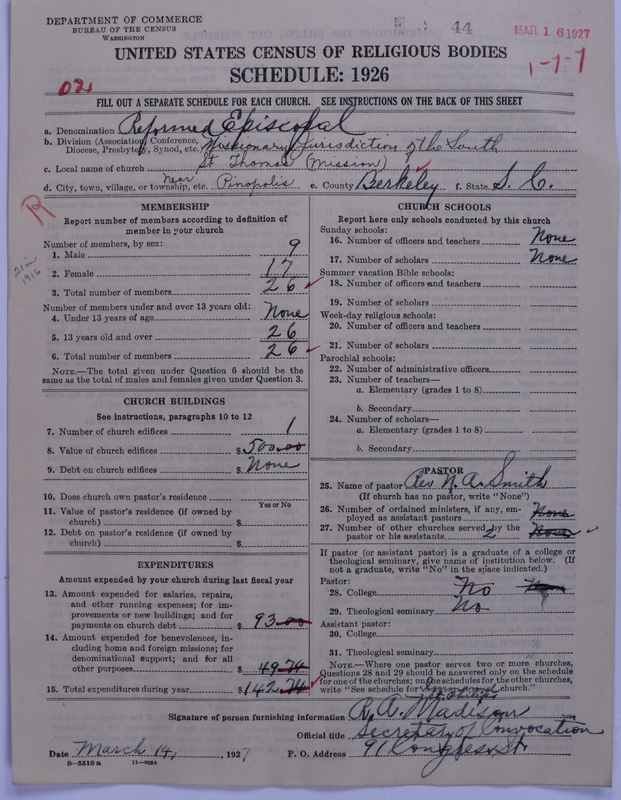 DEPARTMENT OF COMMERCE
BUREAU OF THE CENSUS
WASHINGTON
44
MAR 16 1927
UNITED STATES CENSUS OF RELIGIOUS BODIES
SCHEDULE: 1926
1-7-7
02
FILL OUT A SEPARATE SCHEDULE FOR EACH CHURCH. SEE INSTRUCTIONS ON THE BACK OF THIS SHEET
a. Denomination Reformed Episcopal
b. Division (Association, Conference, Diocese, Presbytery, Synod, etc. Missionary Jurisdiction of the South
c. Local name of church St. Thomas (Mission)
d. City, town, village, or township, etc. Near Pinopolis e. County Berkeley f. State S. C.
R
21 in 1916
MEMBERSHIP
Report number of members according to definition of
member in your church
Number of members, by sex:
1. Male 9
2. Female 17
3. Total number of members 26
Number of members under and over 13 years old:
4. Under 13 years of age None
5. 13 years old and over 26
6. Total number of members 26
NOTE.—The total given under Question 6 should be
same as the total of males and females given under Question 3.
CHURCH BUILDINGS
See instructions, paragraphs 10 to 12
7. Number of church edifices 1
8. Value of church edifices $ 500.00
9. Debt on church edifices $ None
10. Does church own pastor's residence
Yes or No
11. Value of pastor's residence (if owned by
church) $
12. Debt on pastor's residence (if owned by
church) $
EXPENDITURES
Amount expended by your church during last fiscal year
13. Amount expended for salaries, repairs,
and other running expenses; for im-
provements or new buildings; and for
payments on church debt $ 93.00
14. Amount expended for benevolences, in-
cluding home and foreign missions; for
denominational support; and for all
other purposes $ 49.74
15. Total expenditures during year $ 142.74
CHURCH SCHOOLS
Report here only schools conducted by this church
Sunday schools:
16. Number of officers and teachers None
17. Number of scholars None
Summer vacation Bible schools:
18. Number of officers and teachers
19. Number of scholars
Week-day religious schools:
20. Number of officers and teachers
21. Number of scholars
Parochial schools:
22. Number of administrative officers
23. Number of teachers—
a. Elementary (grades 1 to 8)
b. Secondary
24. Number of scholars—
a. Elementary (grades 1 to 8)
b. Secondary
PASTOR
25. Name of pastor Rev N. A. Smith
(If church has no pastor, write "None")
26. Number of ordained ministers, if any, em-
ployed as assistant pastors None
27. Number of other churches served by the
pastor or his assistants 2 None
If pastor (or assistant pastor) is a graduate of a college or
theological seminary, give name of institution below. (If
not a graduate, write "No" in the space indicated.)
Pastor:
28. College No
29. Theological seminary No
Assistant pastor:
30. College
31. Theological seminary
NOTE.—Where one pastor serves two or more churches,
Questions 28 and 29 should be answered only on the schedule
for one of the churches; on the schedules for the other churches,
write "See schedule for church."
Signature of person furnishing information R. A. Madison
Official title Secretary of Convocation
Date March 14, 1927 P. O. Address 91 Congress St
8-5518a 11-9084